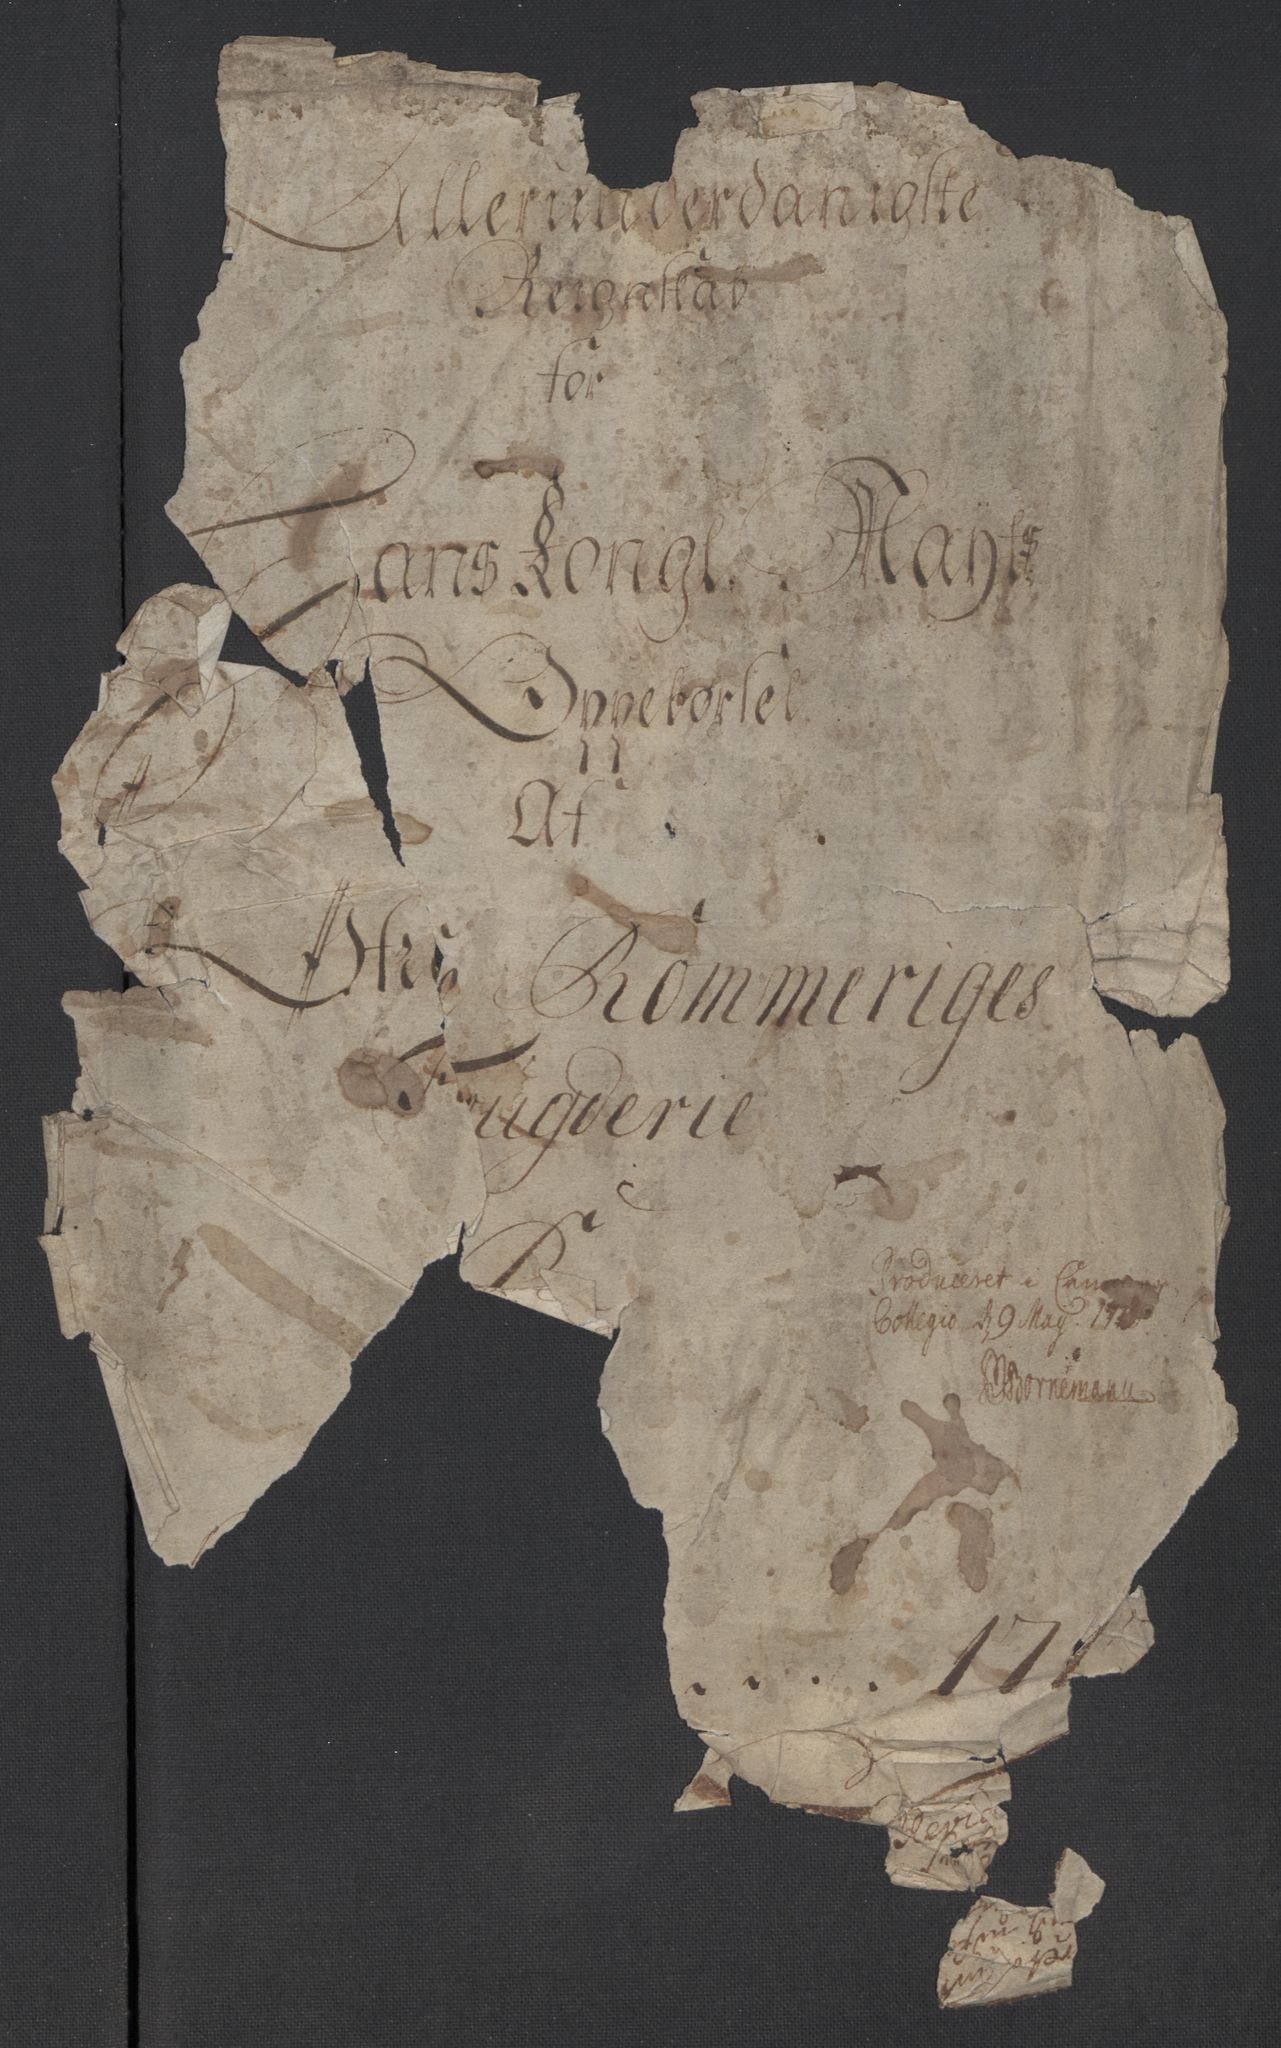 Allerunderdanigste
Reignskab
for
Hans Kongl. Mayts
Oppebørsel
Af
Øfre Rommeriges
Fugderie
Produceret i
Collegio d 9 May. 17
Bornemann
. . . . 171